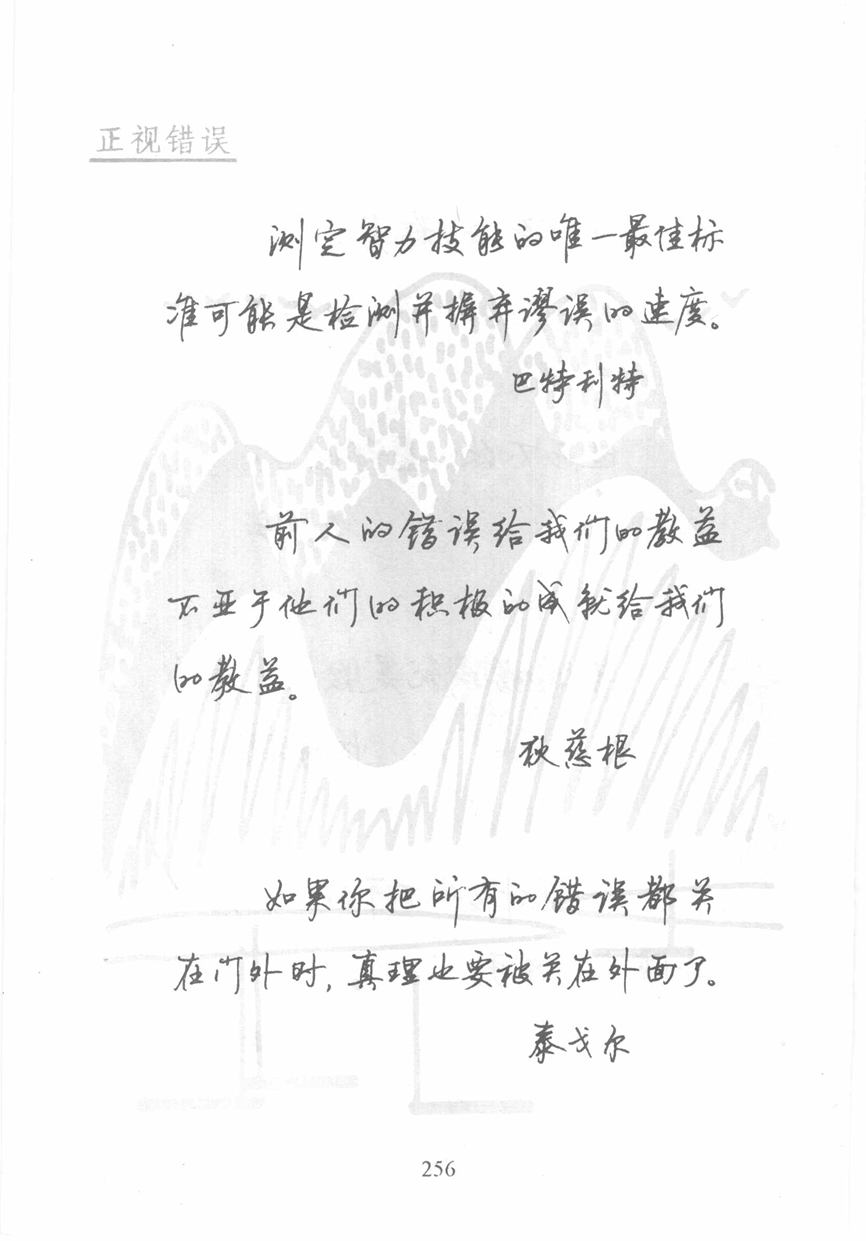 正视错误
测定智力技能的唯一最佳标
准可能是检测并摒弃谬误的速度。
巴特利特
前人的错误给我们的教益
不亚于他们的积极的成就给我们
的教益。
狄慈根
如果你把所有的错误都关
在门外时,真理也要被关在外面了。
泰戈尔
256